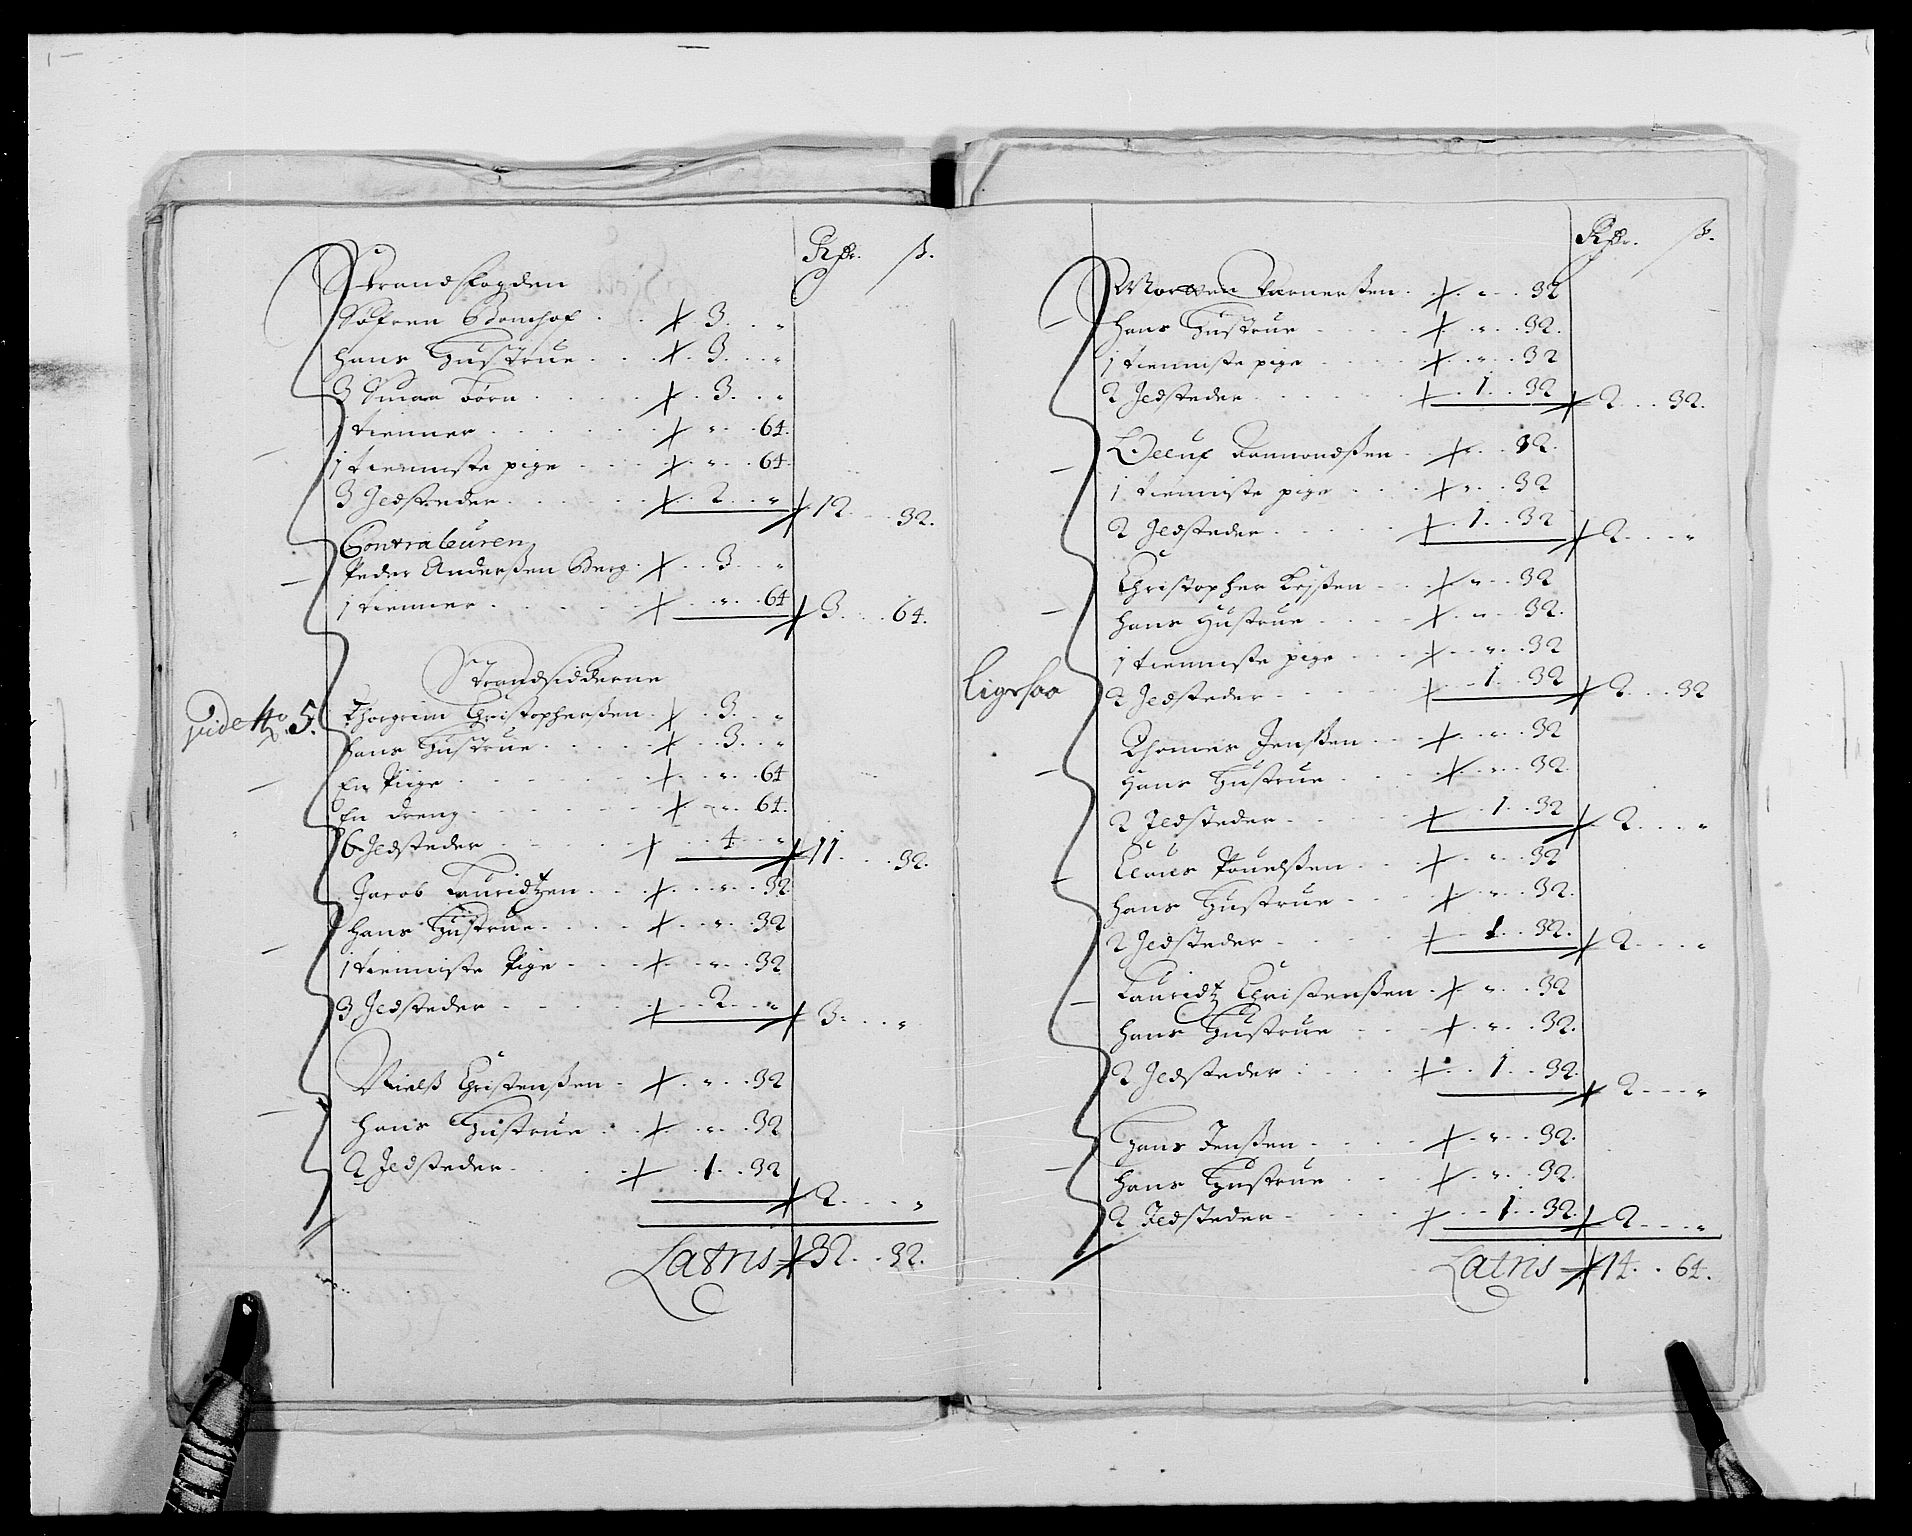 Rdr. ß.
Strandfogden
Søfren Gomhof . . 3 . . "
Hans Hustrue . . . 3 . . "
3 Smaa Børn . . . . 3 . . "
1 tienner . . . . . " . . 64
1 tienniste pige . . . " . . 64
3 Jldsteder . . . . . 2 . . " 12 . . . 32.
Contraleuren
Peder Anderßen Berg . 3 . . "
1 tienner . . . . . " . . 64 3 . . . 64.
Strandsidderne
vide No. 5. Thorgrim Christopherßen . 3 . . "
Hans Hustrue . . . . 3 . . "
En Piige . . . . . " . . 64
En dreng . . . . . " . . 64.
6 Jldsteder . . . . . 4 . . " 11 . . . 32.
Jacob Lauridtzen . . . " . . 32
Hans Hustrue . . . . " . . 32
1 tienniste Pige . . . " . . 32
3 Jldsteder . . . . . 2 . . " 3 . . . "
Nielß Christenßen . " . . 32
Hans Hustrue . . " . . 32
2 Jldsteder . . . . 1 . . 32 2 . . . "
Latris 32 . . 32.
Rdr. ß.
Morten Varnerßen . . " . . 32
Hans Hustrue . . . . " . . 32.
1 tienniste pige . . . . " . . 32
2 Jldsteder . . . . . . 1 . . 32 2 . . . 32.
Oeluf Ramondßen . " . . 32.
1 tienniste pige . . . " . . 32
2 Jldsteder . . . . . 1 . . 32 2 . . . "
Christopher . . " . . 32
Hans Hustrue . . . . " . . 32.
1 tienniste pige . . . " . . 32
ligesaa 2 Jldsteder . . . . . 1 . . 32 2 . . . 32
Thomes Jenßen . . " . . 32
Hans Hustrue . . . " . . 32.
2 Jldsteder . . . . . 1 . . 32 2 . . . "
Claus Pouelßen . . . " . . 32
Hans Hustrue . . . " . . 32.
2 Jldsteder . . . . . 1 . . 32. 2 . . . "
Lauridtz Christenßen . " . . 32
Hans Hustrue . . . " . . 32.
2 Jldsteder . . . . . 1 . . 32. 2 . . . "
Hans Jenßen . . . . " . . 32.
Hans Hustrue . . . " . . 32.
2 Jldsteder . . . . . 1 . . 32. 2 . . . "
Latris 14 . . 64.